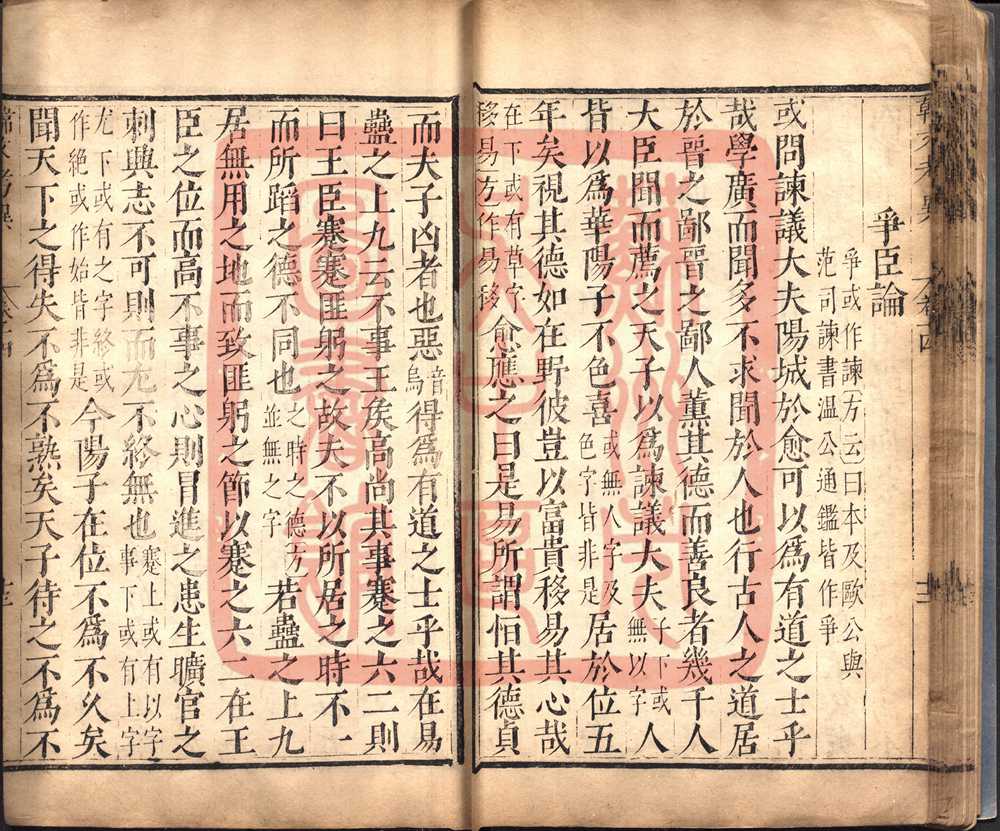 爭臣論
爭或作諫方云曰本及歐公與
范司諫書溫公通鑑皆作爭
或問諫議大夫陽城於愈可以爲有道之士乎
哉學廣而聞多不求聞於人也行古人之道居
於晉之鄙晉之鄙人薰其德而善良者幾千人
大臣聞而薦之天子以爲諫議大夫子下或無以字人
或無人字及
皆以爲華陽子不色喜色字皆非是居於位五
年矣視其德如在野彼豈以富貴移易其心哉
在下或有草字
移易方作易移愈應之曰是易所謂恒其德貞
而夫子凶者也惡音烏得爲有道之士乎哉在易
蠱之上九云不事王矦高尚其事蹇之六二則
曰王臣蹇蹇匪躬之故夫不以所居之時不一
而所蹈之德不同也之時之德方並無之字若蠱之上九
居無用之地而致匪躬之節以蹇之六二在王
臣之位而高不事之心則冒進之患生曠官之
刺興志不可則而尤不終無也蹇上或有以字事下或有上字
尤下或有之字終或
作絶或作始皆非是今陽子在位不爲不久矣
聞天下之得失不爲不熟矣天子待之不爲不